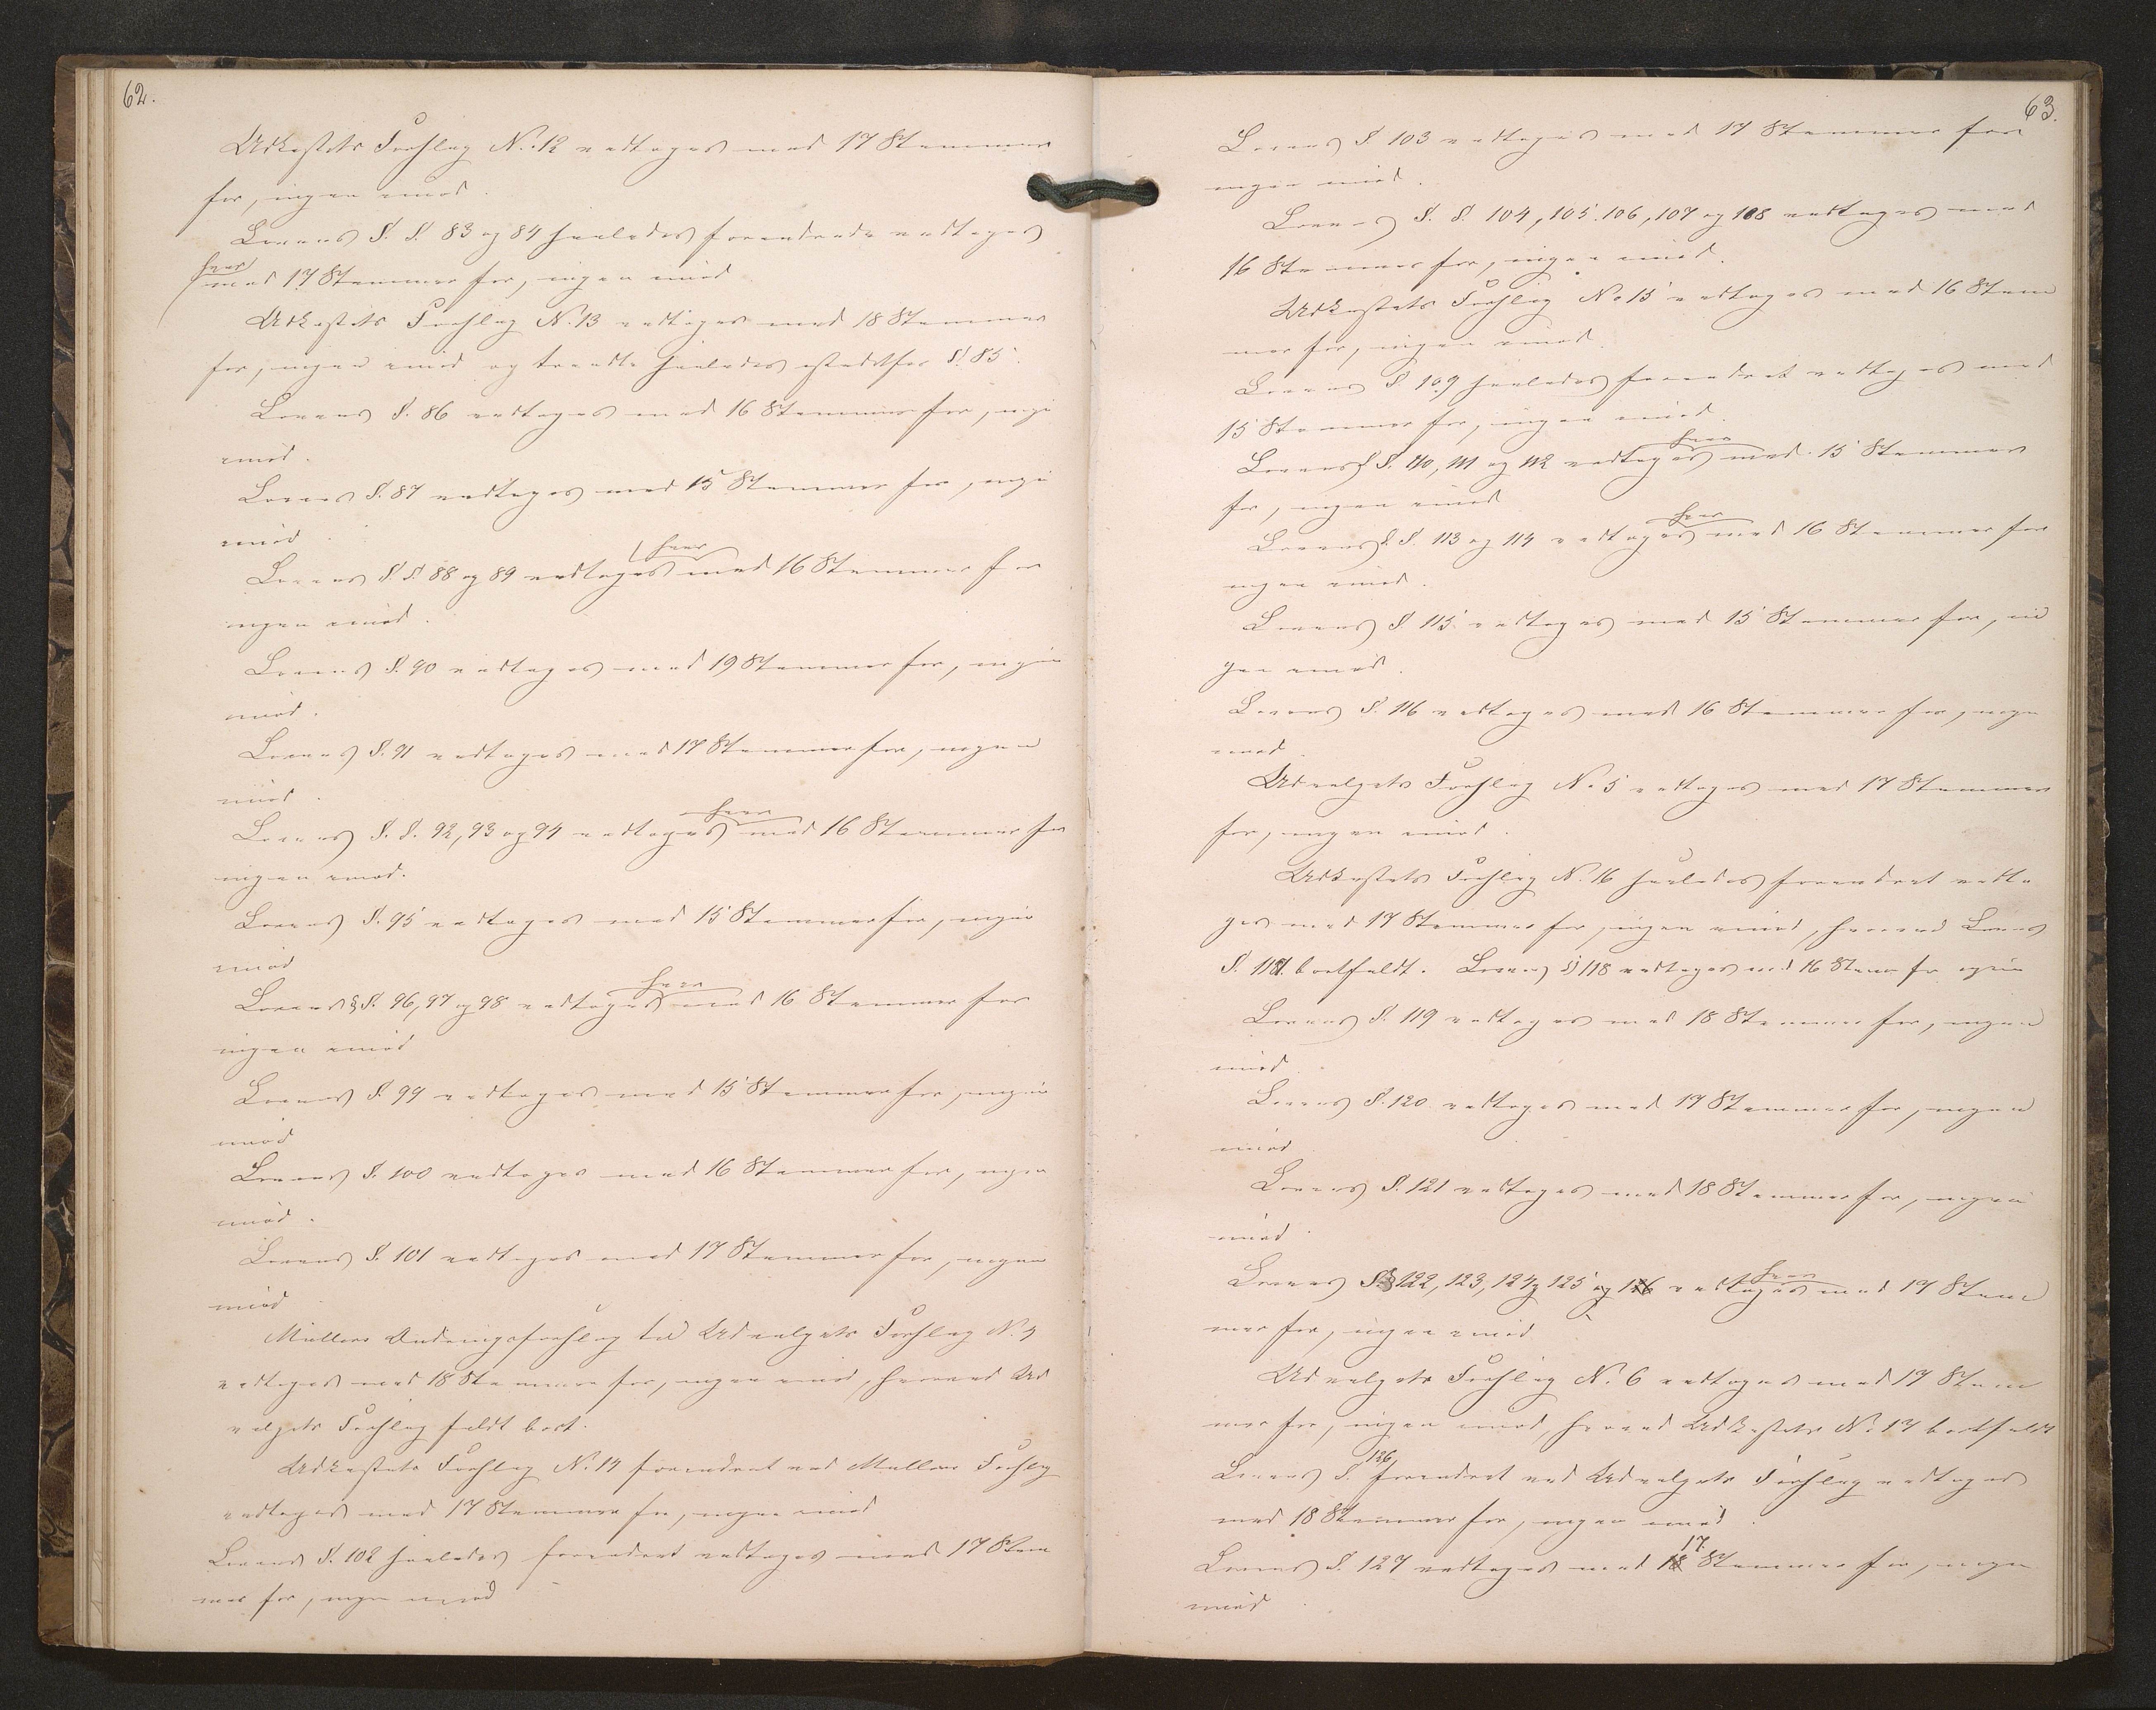 62.
Udkastets Forslag No. 12 vedtoges med 17 Stemmer
for, ingen imod.
Lovens §. §. 83 og 84 saaledes forandrede vedtoges
hver
med 17 Stemmer for, ingen imod
Udkastets Forslag No. 13 vedtoges med 18 Stemmer
for, ingen imod og traadte saaledes istedetfor §. 85.
Lovens §. 86 vedtoges med 16 Stemmer for, ingen
imod.
Lovens §. 87 vedtoges med 15 Stemmer for, ingen
imod.
hver
Lovens § § 88 og 89 vedtoges med 16 Stemmer for
ingen imod.
Lovens §. 90 vedtoges med 19 Stemmer for, ingen
imod.
Lovens §. 91 vedtoges med 17 Stemmer for, ingen
imod.
hver
Lovens §. §. 92, 93 og 94 vedtoges med 16 Stemmer for
ingen imod.
Lovens §. 95 vedtoges med 15 Stemmer for, ingen
imod
hver
Lovens § §. 96, 97 og 98 vedtoges med 16 Stemmer for
ingen imod
Lovens §. 99 vedtoges med 15 Stemmer for, ingen
imod
Lovens §. 100 vedtoges med 16 Stemmer for, ingen
imod.
Lovens §. 101 vedtoges med 17 Stemmer for, ingen
imod
Müllers Ændringsforslag til Udvalgets Forslag No. 4
vedtoges med 18 Stemmer for, ingen imod, hvorved Ud
valgets Forslag faldt bort.
Udkastets Forslag No. 14 forandret ved Müllers Forslag
vedtoges med 17 Stemmer for, ingen imod
Lovens §. 102 saaledes forandret vedtoges med 17 Stem
mer for, ingen imod
63.
Lovens § 103 vedtoges med 17 Stemmer for
ingen imod.
Lovens §. §. 104, 105. 106, 107 og 108 vedtoges med
16 Stemmer for, ingen imod.
Udkastets Forslag No 15 vedtoges med 16 Stem
mer for, ingen imod.
Lovens §. 109 saaledes forandret vedtoges med
15 Stemmer for, ingen imod.
hver
Lovens § §. 110, 111 og 112 vedtoges med 15 Stemmer
for, ingen imod
hver
Lovens § §. 113 og 114 vedtoges med 16 Stemmer for
ingen imod.
Lovens §. 115 vedtoges med 15 Stemmer for, in
gen imod.
Lovens §. 116 vedtoges med 16 Stemmer for, ingen
imod.
Udvalgets Forslag No. 5 vedtoges med 17 Stemmer
for, ingen imod.
Udkastets Forslag No. 16 saaledes forandret vedto
ges med 17 Stemmer for, ingen imod, hvorved Lovens
§. 117. bortfaldt. Lovens § 118 vedtoges med 16 Stem for
Lovens §. 119 vedtoges med 18 Stemmer for, ingen
imod.
Lovens §. 120 vedtoges med 19 Stemmer for, ingen
imod.
Lovens §. 121 vedtoges med 18 Stemmer for, ingen
imod.
hver
Lovens § § 122, 123, 124 og 125 og 126 vedtoges med 17 Stem
mer for, ingen imod
Udvalgets Forslag No. 6 vedtoges med 17 Stem
mer for, ingen imod, hvorved Udkastets No. 17 bortfaldt
126
Lovens §. forandret ved Udvalgets Forslag vedtoges
med 18 Stemmer for, ingen imod.
17.
Lovens §. 127 vedtoges med 18 Stemmer for, ingen
imod.